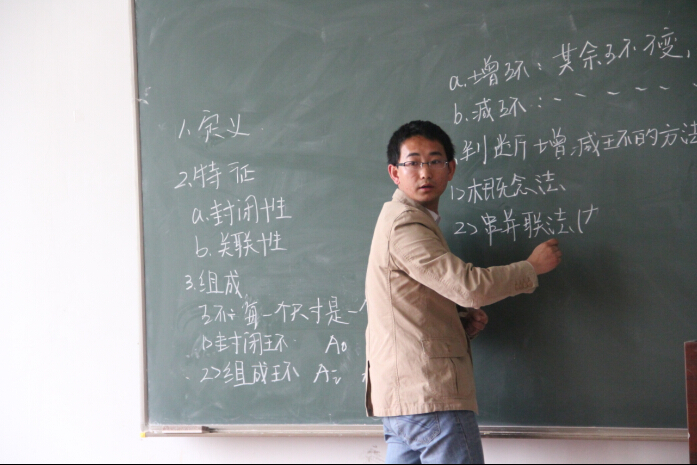 1、定义
2、特征
a.封闭性
b.关联性
3.组成
环:每一个尺寸是一
1>封闭环 A₀
2>组成环 Aᵢ
a.增环:其余环不变,
b.减环:- - - - -
判断增减环的方法
1>概念法
2>串并联法(